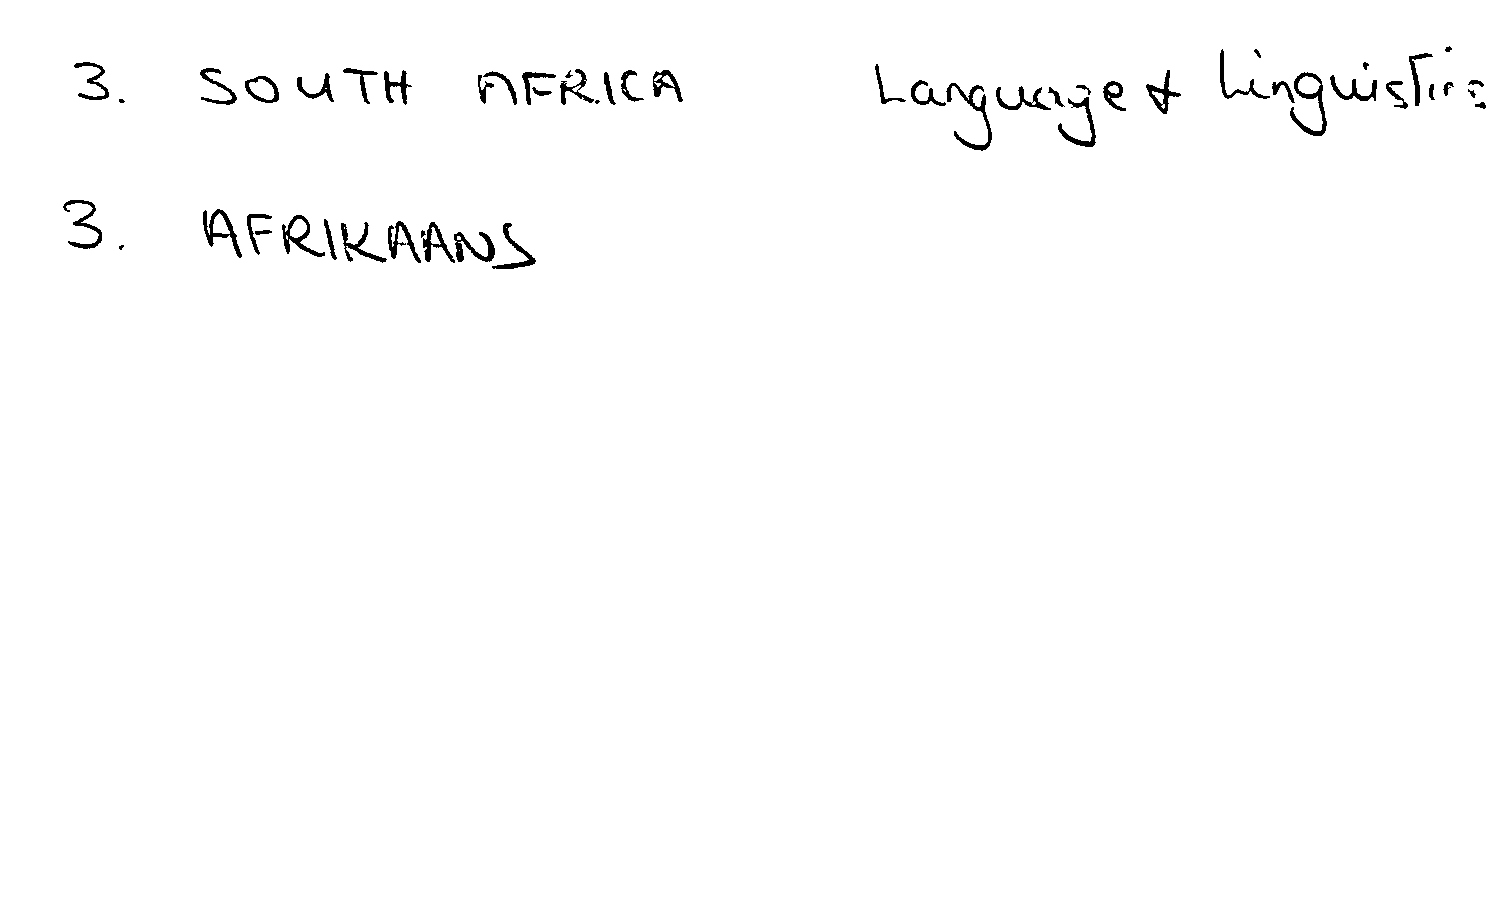 3. SOUTH AFRICA Language & Linguistics
3. AFRIKAANS